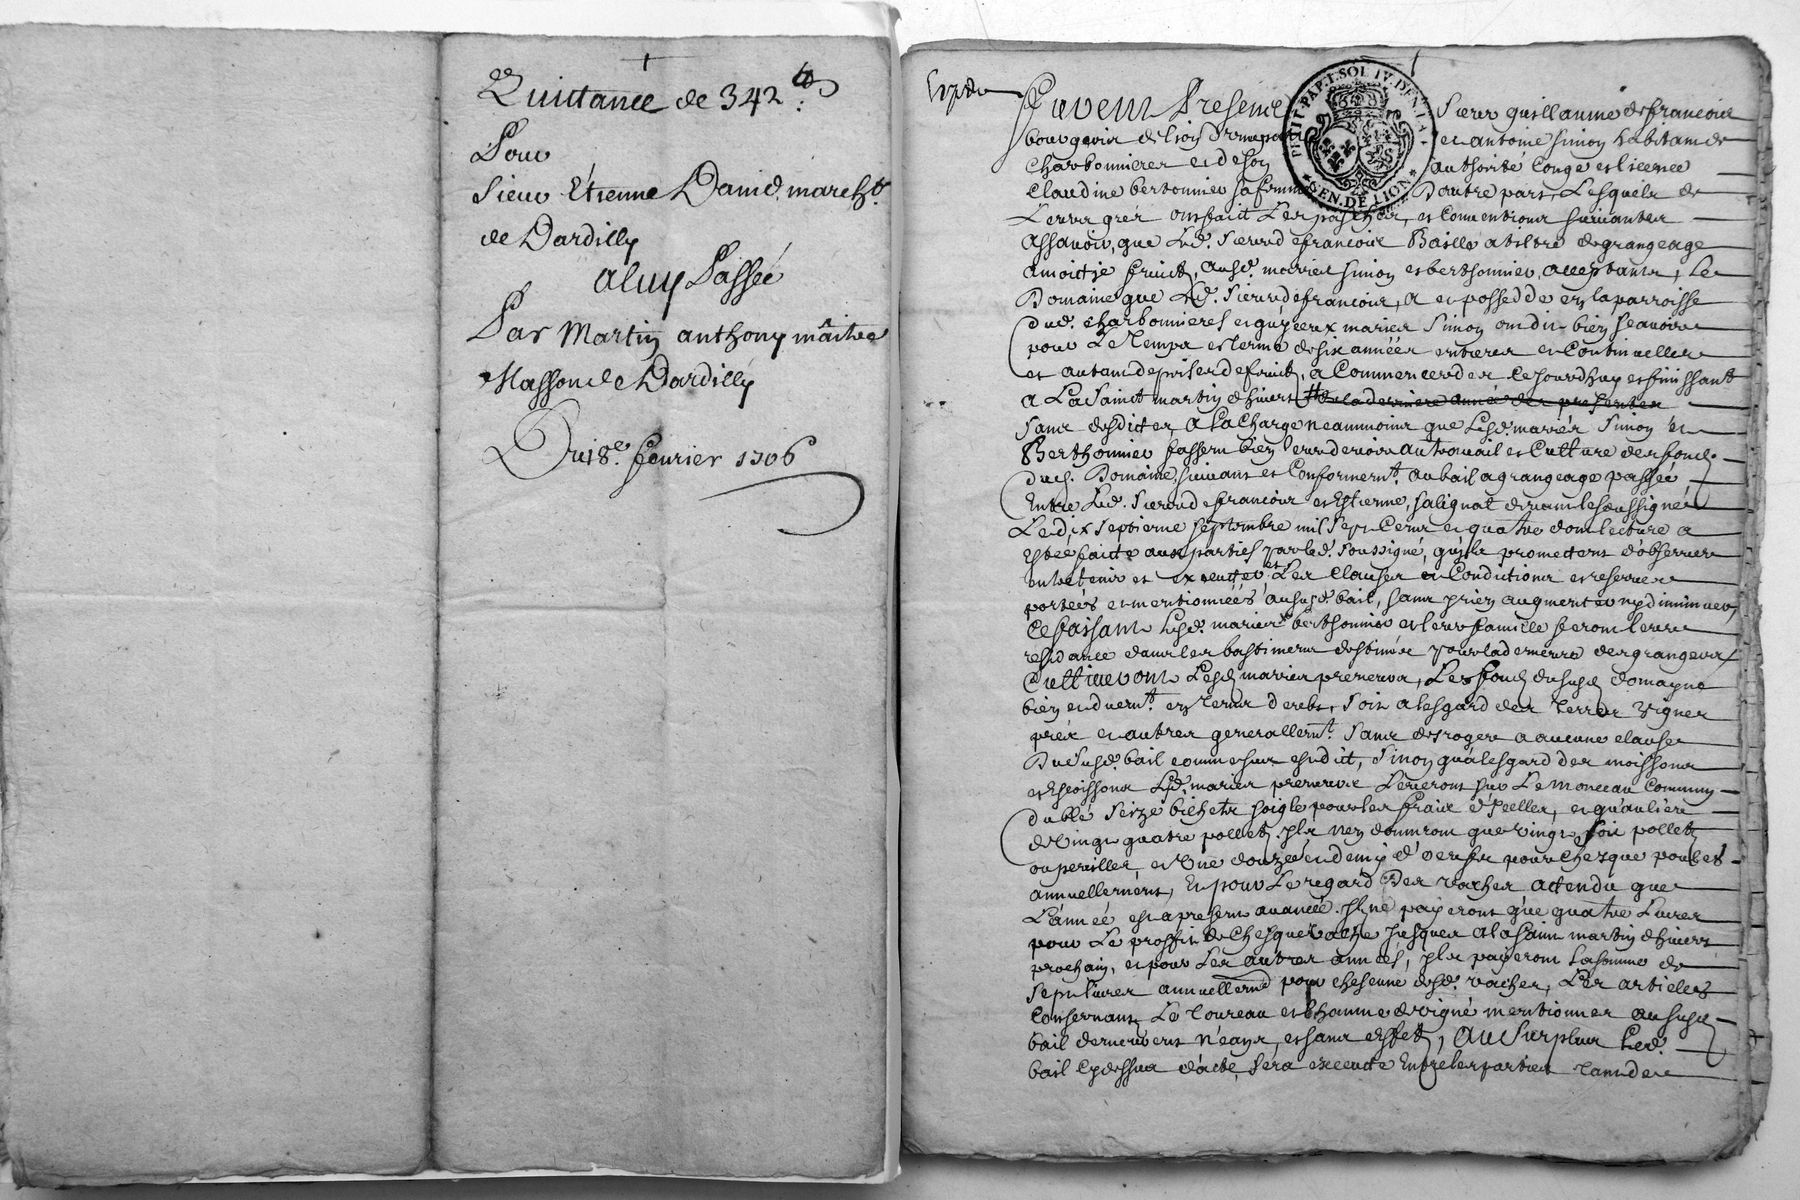 Quittance de 342 ₶
Pour
Sieur Etienne Danid. march.t
de Dardilly
a luy Passée
Par Martin anthony maitre
Masson de Dardilly
Du 18.e feurier 1706
Expdie
Furent Presens Sieur guillaume defrancoix
bourgeois de lion d'une part et antoine simon habitant de
Charbonnieres et de son authorité Conge et licence
Claudine bertonnier sa femme Dautre part, Lesquels de
Leurs gréz ont fait Les paches, et Conuentions suiuantes
Assauoir, que Led. Sieur defrancoix Baille a tiltre de grangeage
a moictié fruict, ausd. mariés simon et berthonnier, acceptants, Le
Domaine que Led. Sieur defrancoix, a et possedde en la parroisse
dud. charbonnieres et qu'jceux mariés Simon ont dit bien sçauoir
pour Le Temps et terme de six années entieres et Continuelles
et autant de prises de fruict, a Commencer des Cejourdhuy et finissant
a La Sainct martin d'hiuert de la derniere année des presentes
sans desdittes, a la Charge neantmoins que Lesd. mariés Simon et
Berthonnier fassent bien leur deuoir au trauail et Culture des fonds
dud. Domaine, suiuant et Conformem.t au bail a grangeage passé
Entre Led. Sieur defrancoix et Estienne, salignat deuant le soussigné
Le dix septieme septembre mil sept Cents et quatre dont lecture a
Estée faicte aux parties par led. soussigné, qu'jls promettent d'obseruer
entretenir et executter et Les Clauses et Conditions et reserues
portées et mentionnées aususd. bail, sans y rien augmenter ny diminuer,
Ce faisant Lesd. mariés berthonnier et leur famille feront leur
residance dans les bastiments destinés pour la demeure des grangers
Cultiueront Lesd. mariés preneurs, Les fonds du susd. domayne
bien et duem.t en temps debt, soit a lesgard des terres Vignes
prés et autres generallem.t sans desroger a aucune clause
Du Susd. bail comme sus est dit, sinon qu'a lesgard des moissons
et Escoissons Lesd. mariés preneurs Leueront sur Le monceau Commun
du blé seize bichets soigle pour les fraix d'jcelles, et qu'au lieu
de Vingt quatre pollets jls n'en donneront que vingt, soit pollets
ou poreilles, et Vne douzee et demy d'oeufs pour chesque poulet
annuellement, Et pour Le regard Des vaches attendu que
L'année est a present auancée jls ne payeront que quatre Liures
pour Le proffit de Chesque vache jusques a la saint martin d'hiuert
prochain, et pour Les autres années, jls payeront la somme de
sept liures annuellem.t pour chescune desd. vaches, Les articles
Consernant Le Toureau et L'homme de vigne mentionnes au susd.
bail demeurent néants, et sans effets, Au Surplus Led.
bail Cy dessus datté, sera executé Entre les parties tant de
PETIT. PAP. 1. SOL IV. DEN. LA.
GEN. DE LION